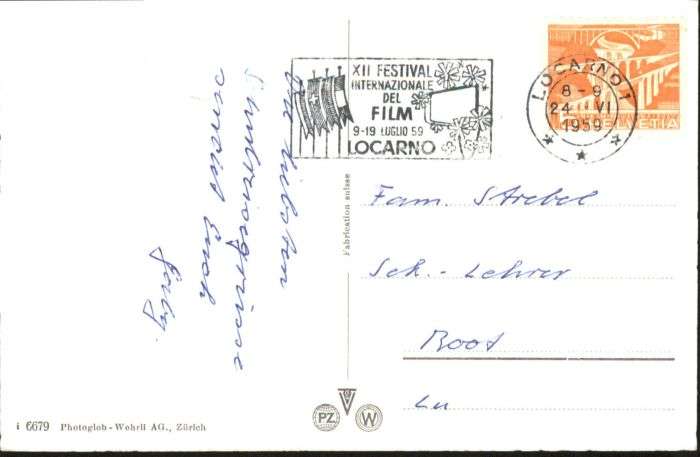 Die liebsten
wünscht Euch
XII FESTIVAL
INTERNAZIONALE
DEL
FILM
9-19 LUGLIO 59
LOCARNO
LOCARNO 1
8-9
24 VI
1959
HELVETIA
5
Fabrication suisse
Fam. Strebel
Sek.-Lehrer
Root
Lu
PZ W
i 6679 Photoglob-Wehrli AG., Zürich